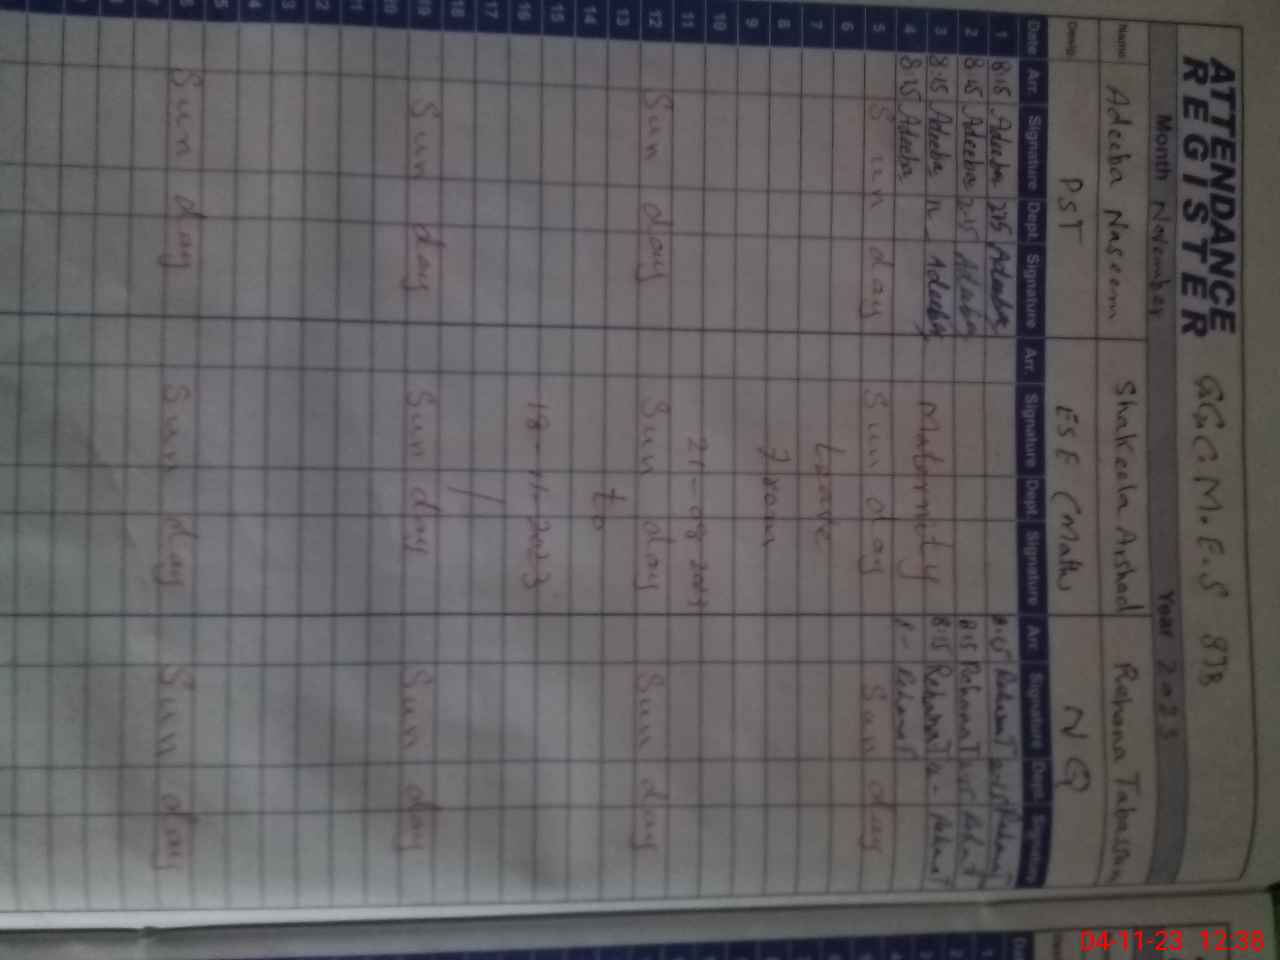 ATTENDANCE REGISTER
G.G.C.M.E.S 87B
Month November Year 2023
Name Adeeba Naseem Shakeela Arshad Rehana Tabassum
PST ESE (Math) NQ
Date Arr. Signature Dept. Signature Arr. Signature Dept. Signature Arr. Signature Dept. Signature
1 8:15 Adeeba 2:15 Adeeba 8:15
2 8:15 Adeeba 2:15 Adeeba 8:15 Rehana T
3 8:15 Adeeba Adeeba 8:15 Rehana T
4 8:15 Adeeba Maternity
5 Sunday Sunday Sunday
6
7 Leave
8 From
9
10
11
12 Sunday Sunday Sunday
13
14 to
15
16 18-11-2023
17
18
19 Sunday Sunday Sunday
20
21
22
23
24
25
26 Sunday Sunday Sunday
04-11-23 12:38